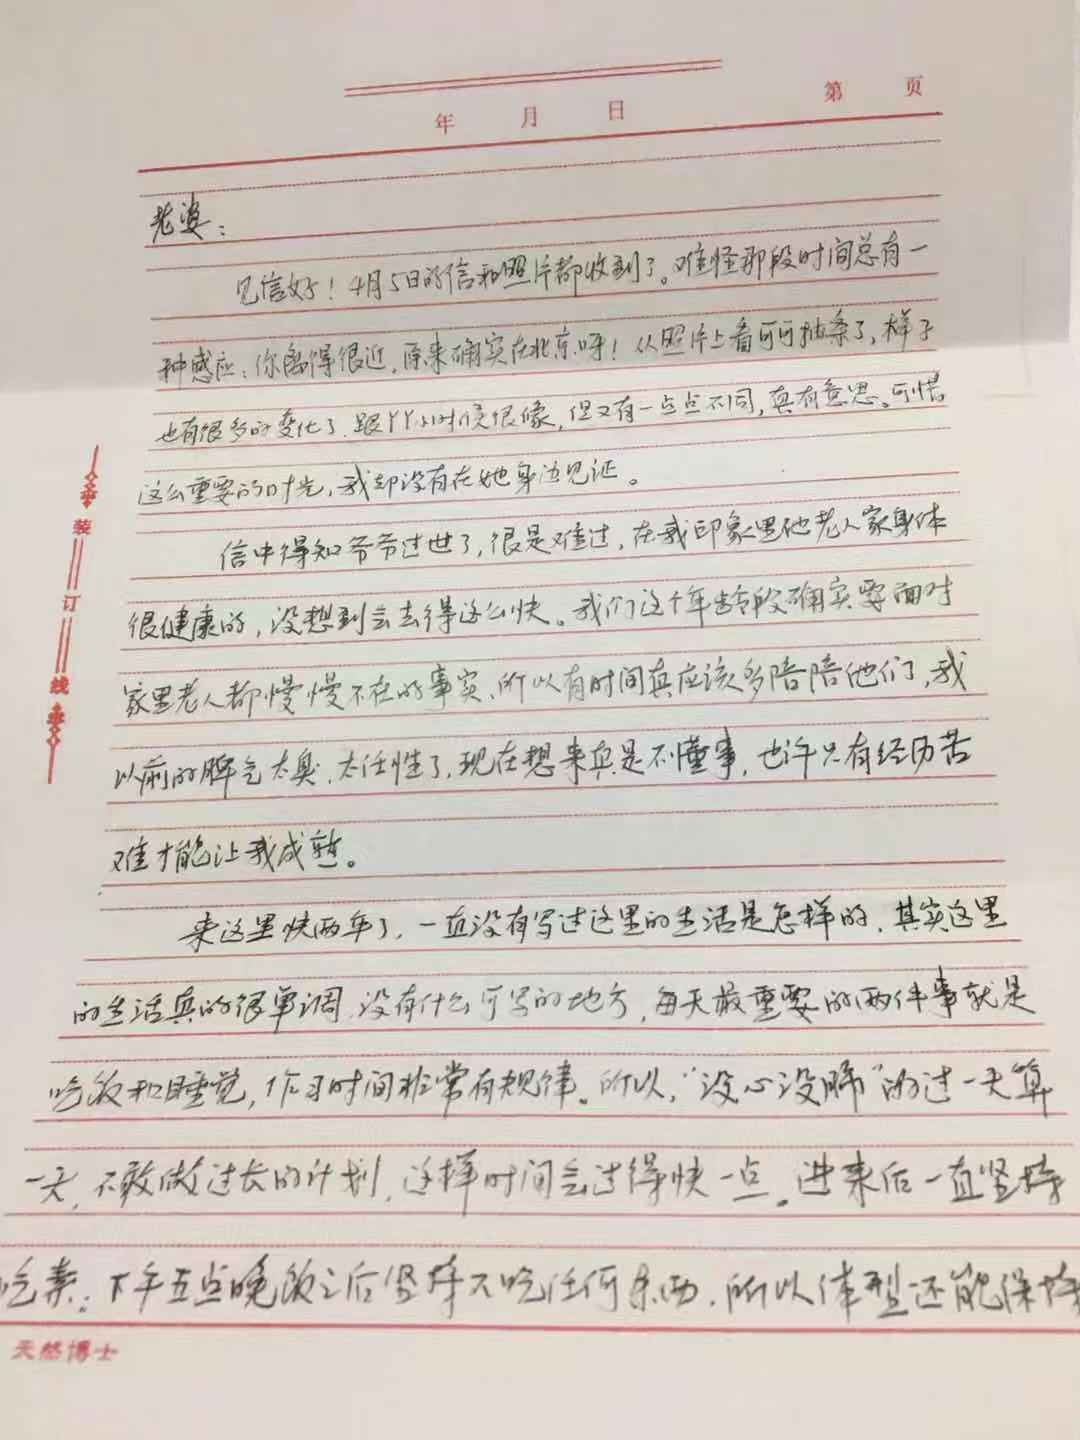 年 月 日 第 页
老婆：
见信好！4月5日的信和照片都收到了。难怪那段时间总有一
种感应：你离得很近，原来确实在北京呀！从照片上看可可抽条了，样子
也有很多的变化了，跟丫丫小时候很像，但又有一点点不同，真有意思。可惜
这么重要的时光，我却没有在她身边见证。
信中得知爷爷过世了，很是难过，在我印象里他老人家身体
很健康的，没想到会去得这么快。我们这个年龄段确实要面对
家里老人都慢慢不在的事实，所以有时间真应该多陪陪他们，我
以前的脾气太臭，太任性了，现在想来真是不懂事，也许只有经历苦
难才能让我成熟。
来这里快两年了，一直没有写过这里的生活是怎样的，其实这里
的生活真的很单调，没有什么可写的地方，每天最重要的两件事就是
吃饭和睡觉，作习时间非常有规律。所以，“没心没肺”的过一天算
一天，不敢做过长的计划，这样时间会过得快一点。进来后一直坚持
吃素；下午五点晚饭之后坚持不吃任何东西，所以体型还能保持
装订线
天然博士